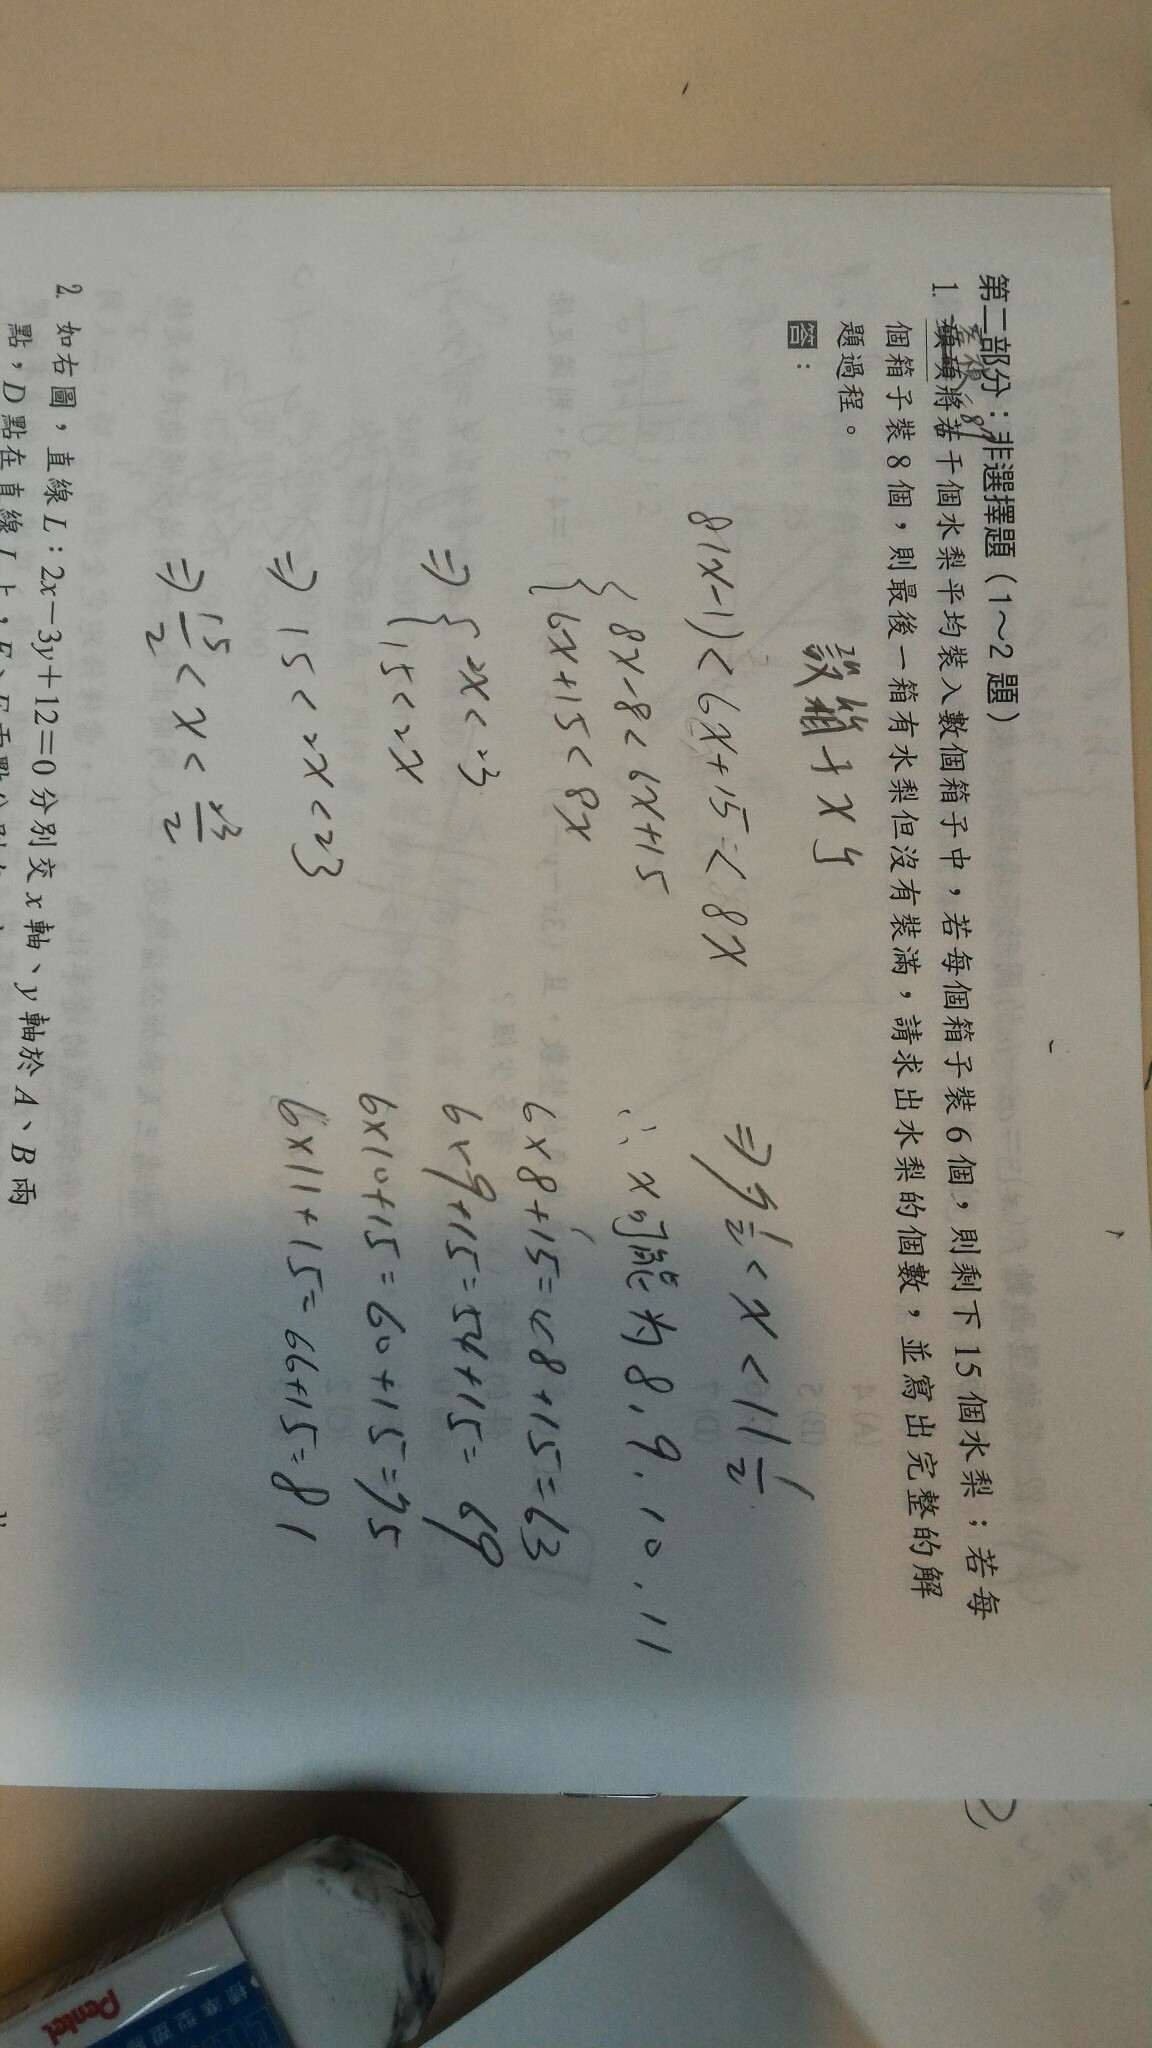 第二部分：非選擇題（1～2 題）
1. 將若干個水梨平均裝入數個箱子中，若每個箱子裝 6 個，則剩下 15 個水梨；若每
個箱子裝 8 個，則最後一箱有水梨但沒有裝滿，請求出水梨的個數，並寫出完整的解
題過程。
答：
設箱子x個
8(x-1)<6x+15<8x
{8x-8<6x+15
{6x+15<8x
⇒{2x<23
{15<2x
⇒ 15<2x<23
⇒ 15/2<x<23/2
⇒ 7 1/2<x<11 1/2
∴ x可能為8.9.10.11
6×8+15=48+15=63
6×9+15=54+15=69
6×10+15=60+15=75
6×11+15=66+15=81
2. 如右圖，直線 L：2x－3y＋12＝0 分別交 x 軸、y 軸於 A、B 兩
點，D 點在直線 L 上，
Pentel
標準型塑